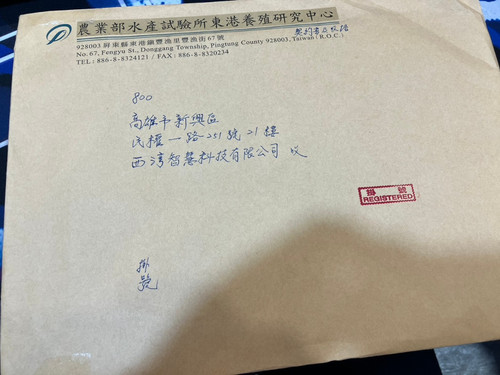 農業部水產試驗所東港養殖研究中心
928003 屏東縣東港鎮豐漁里豐漁街67號
No.67, Fengyu St., Donggang Township, Pingtung County 928003, Taiwan (R.O.C.)
TEL : 886-8-8324121 / FAX : 886-8-8320234
契約書正校路
800
高雄市新興區
民權一路251號21樓
西灣智慧科技有限公司 收
掛號
REGISTERED
掛
號